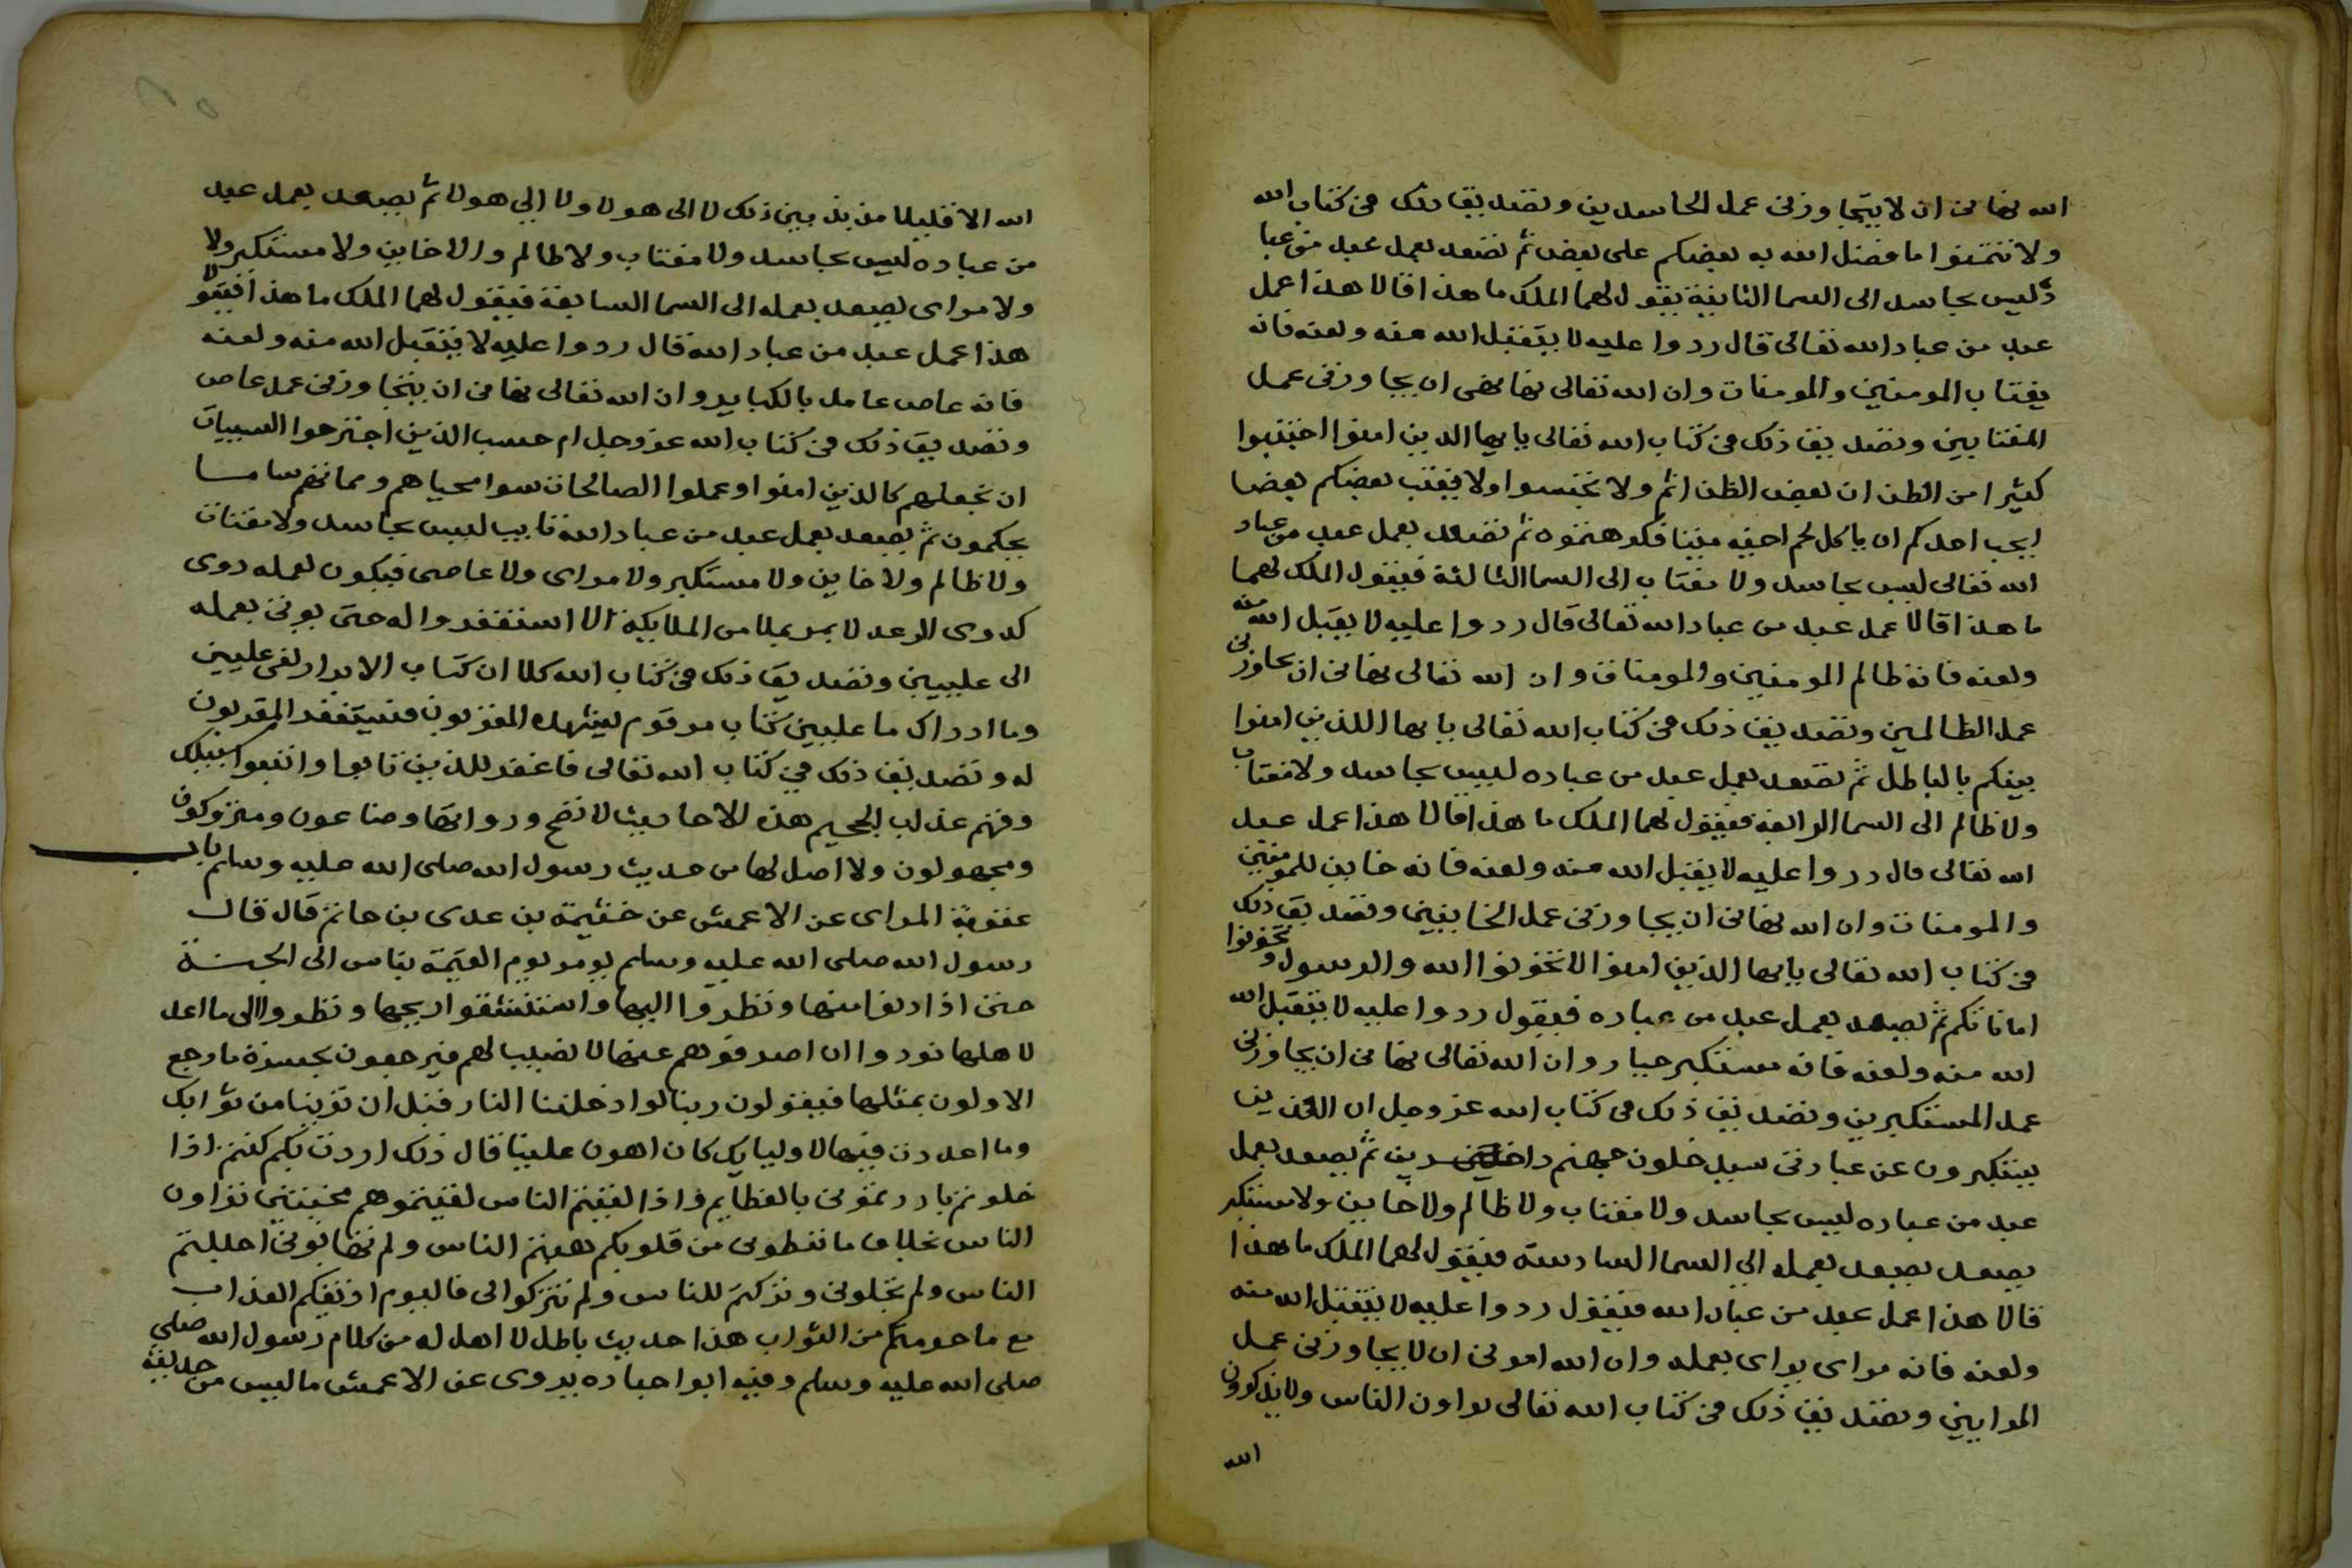 الله نهانى ان لا يتجاوزنى عمل الحاسدين وتصديق ذلك فى كتاب الله
ولا تتمنوا ما فضل الله به بعضكم على بعض ثم تصعد بعمل عبد من عبا
ده ليس بحاسد الى السما الثانية يقول لهما الملك ما هذا قالا هذا عمل
عبد من عباد الله تعالى قال ردوا عليه لا يتقبل الله منه ولعنه فانه
يغتاب المومنين والمومنات وان الله تعالى نهانى ان يجاوزنى عمل
المغتابين وتصديق ذلك فى كتاب الله تعالى يايها الذين امنوا اجتنبوا
كثيرا من الظن ان بعض الظن اثم ولا تجسسوا ولا يغتب بعضكم بعضا
ايحب احدكم ان ياكل لحم اخيه ميتا فكرهتموه ثم تصعد بعمل عبد من عباد
الله تعالى ليس بحاسد ولا مغتاب الى السما الثالثة فيقول الملك لهما
ما هذا قالا عمل عبد من عباد الله تعالى قال ردوا عليه لا يقبل الله منه
ولعنه فانه ظالم المومنين والمومنات وان الله تعالى نهانى ان يجاوزنى
عمل الظالمين وتصديق ذلك فى كتاب الله تعالى يايها الذين امنوا
بينكم بالباطل ثم تصعد بعمل عبد من عباده ليس بحاسد ولا مغتاب
ولا ظالم الى السما الرابعة فيقول لهما الملك ما هذا قالا هذا عمل عبد
الله تعالى قال ردوا عليه لا يقبل الله منه ولعنه فانه خاين للمومنين
والمومنات وان الله نهانى ان يجاوزنى عمل الخاينين وتصديق ذلك
فى كتاب الله تعالى يايها الذين امنوا لا تخونوا الله والرسول وتخونوا
اماناتكم ثم يصعد بعمل عبد من عباده فيقول ردوا عليه لا يتقبل الله
الله منه ولعنه فانه مستكبر جبار وان الله تعالى نهانى ان يجاوزنى
عمل المستكبرين وتصديق ذلك فى كتاب الله عز وجل ان الذين
يستكبرون عن عبادتى سيدخلون جهنم داخرين ثم يصعد بعمل
عبد من عباده ليس بحاسد ولا مغتاب ولا ظالم ولا خاين ولا مستكبر
يصعد يصعد بعمله الى السما السادسة فيقول لهما الملك ما هذا
قالا هذا عمل عبد من عباد الله فيقول ردوا عليه لا يتقبل الله منه
ولعنه فانه مراى يراى بعمله وان الله امرنى ان لا يجاوزنى عمل
المرايين وتصديق ذلك فى كتاب الله تعالى يراون الناس ولا يذكرون
الله
الله الا قليلا مذبذبين ذلك لا الى هولا ولا الى هولا ثم يصعد بعمل عبد
من عباده ليس بحاسد ولا مغتاب ولا ظالم ولا خاين ولا مستكبر ولا
ولا مراى يصعد بعمله الى السما السابعة فيقول لهما الملك ما هذا فيقولا
هذا عمل عبد من عباد الله قال ردوا عليه لا يتقبل الله منه ولعنه
فانه عاص عامل بالكباير وان الله تعالى نهانى ان يتجاوزنى عمل عاص
وتصديق ذلك فى كتاب الله عز وجل ام حسب الذين اجترحوا السييات
ان نجعلهم كالذين امنوا وعملوا الصالحات سوا محياهم ومماتهم سا ما
يحكمون ثم يصعد بعمل عبد من عباد الله تايب ليس بحاسد ولا مغتاب
ولا ظالم ولا خاين ولا مستكبر ولا مراى ولا عاصى فيكون لعمله دوى
كدوى الرعد لا يمر بملا من الملايكة الا استغفروا له حتى يوتى بعمله
الى عليين وتصديق ذلك فى كتاب الله كلا ان كتاب الابرار لفى عليين
وما ادراك ما عليين كتاب مرقوم يشهده المقربون فيستغفر المقربون
له وتصديق ذلك فى كتاب الله تعالى فاغفر للذين تابوا واتبعوا سبيلك
وقهم عذاب الجحيم هذه الاحاديث لا تصح ورواتها وضاعون ومتروكون
ومجهولون ولا اصل لها من حديث رسول الله صلى الله عليه وسلم باب
عقوبة المراى عن الاعمش عن خثيمة بن عدى بن حاتم قال قال
رسول الله صلى الله عليه وسلم يومر يوم القيمة بناس الى الجنة
حتى اذا دنوا منها ونظروا اليها واستنشقوا ريحها ونظروا الى ما اعد
لاهلها نودوا ان اصرفوهم عنها لا نصيب لهم فيرجعون بحسرة ما رجع
الاولون بمثلها فيقولون ربنا لو ادخلتنا النار قبل ان ترينا من ثوابك
وما اعددت فيها لاوليايك كان اهون علينا قال ذلك اردت بكم كنتم اذا
خلوتم بارزتمونى بالعظايم واذا لقيتم الناس لقيتموهم مخبتين تراون
الناس بخلاف ما تعطونى من قلوبكم هبتم الناس ولم تهابونى اجللتم
الناس ولم تجلونى وتركتم للناس ولم تتركوا لى فاليوم اذيقكم العذاب
مع ما حرمتكم من الثواب هذا حديث باطل لا اهل له من كلام رسول الله صلى
صلى الله عليه وسلم وفيه ابوا جباده يروى عن الاعمش ما ليس من حديثه